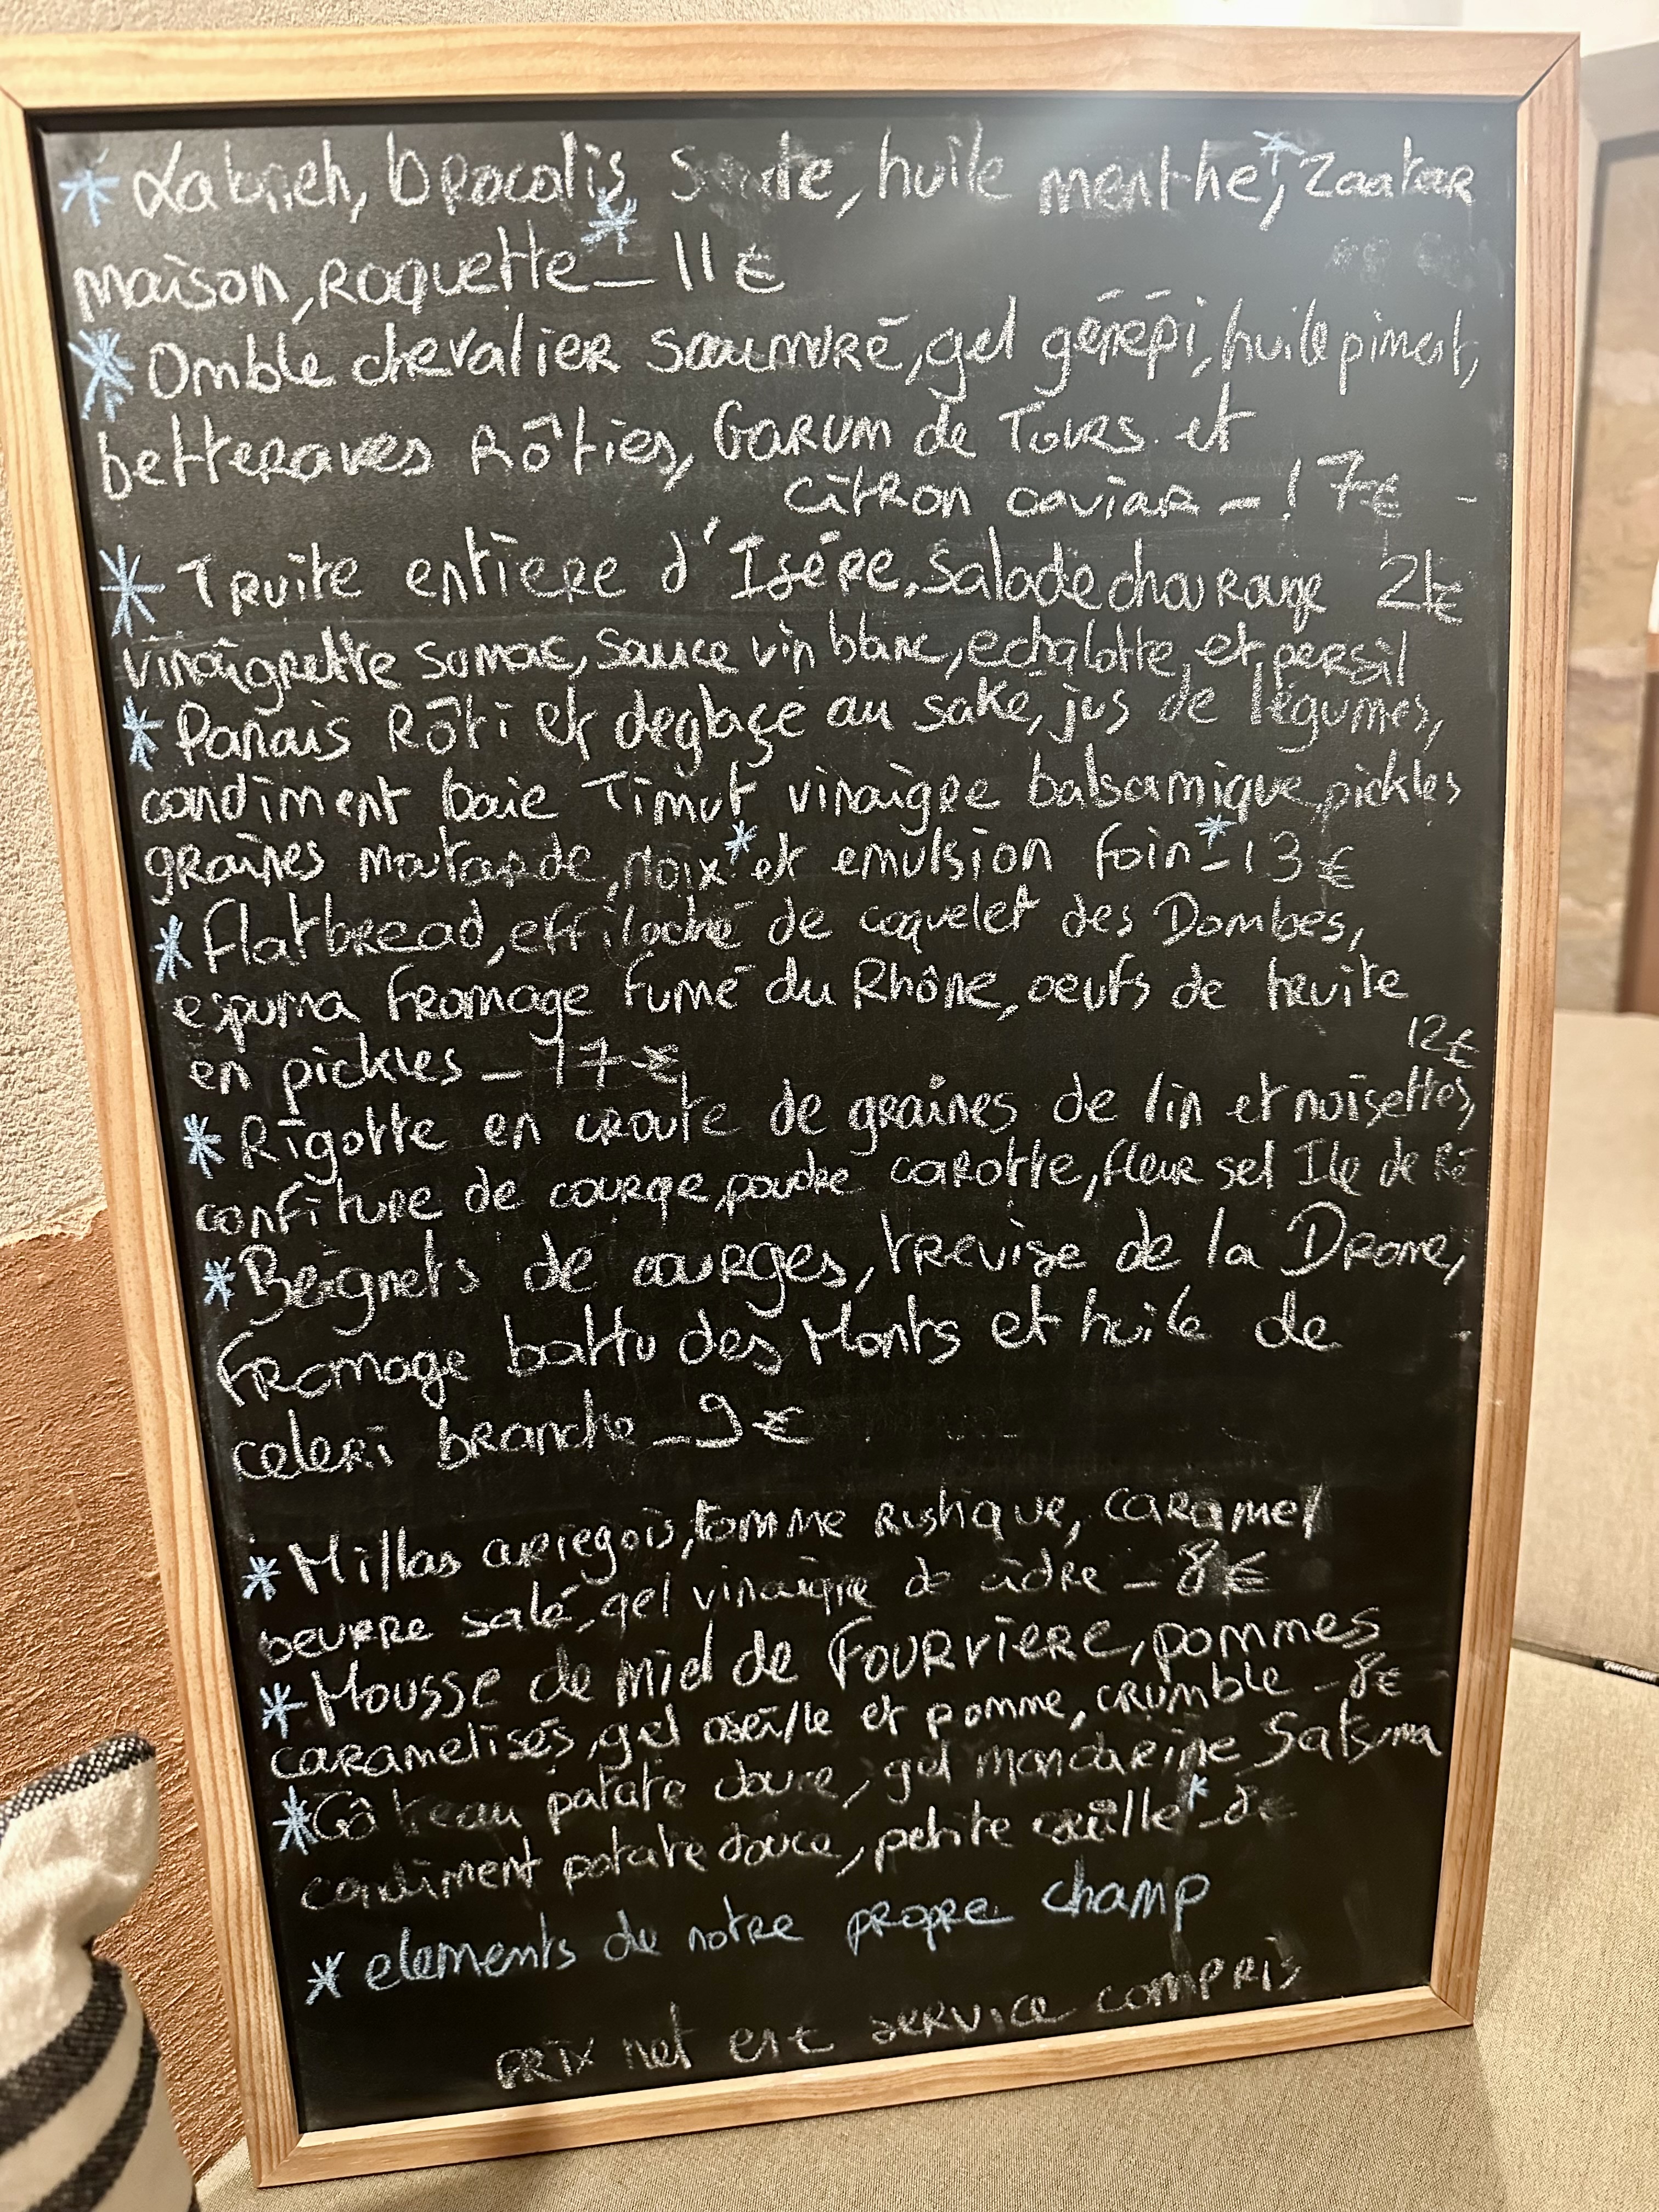 * Labneh, brocolis, huile menthe*, Zaatar
maison, roquette* _ 11 €
* Omble chevalier saumuré, gel génépi, huile piment,
betteraves Rôties, GARUM de TOURS et
citron caviar - 17 €
* Truite entiere d'Isére, salade chou rouge 21€
vinaigrette sumac, sauce vin blanc, echalotte, et persil
* Panais Rôti et deglaçé au saké, jus de légumes,
condiment baie Timut vinaigre balsamique, pickles
graines moutarde, noix* et emulsion foin* - 13 €
* flatbread, effiloché de coquelet des Dombes,
espuma fromage fumé du Rhône, oeufs de truite
en pickles - 17 €
12€
* Rigotte en croute de graines de lin et noisettes,
confiture de courge, poudre carotte, fleur sel Ile de Ré
* Beignets de courges, trevise de la Drome,
fromage battu des Monts et huile de
celeri branche - 9 €
* Millas ariegois, tomme Rustique, caramel
beurre salé, gel vinaigre de cidre - 8 €
* Mousse de miel de FOURVIERE, pommes
caramelisés, gel oseille et pomme, crumble - 8€
* Gâteau patate douce, gel mandarine Satsuma
condiment patate douce, petite oseille* - 8€
* elements de notre propre champ
prix net et service compris